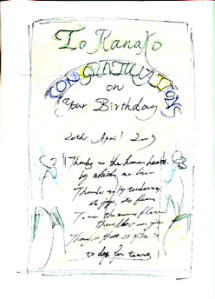 To Kanako
CONGRATULATIONS
on
Your Birthday
20th April 2009
Thanks to the human heart
by which we live
Thanks to its tenderness
its joys, its fears
To me the
flower
Thoughts that
too deep for tears